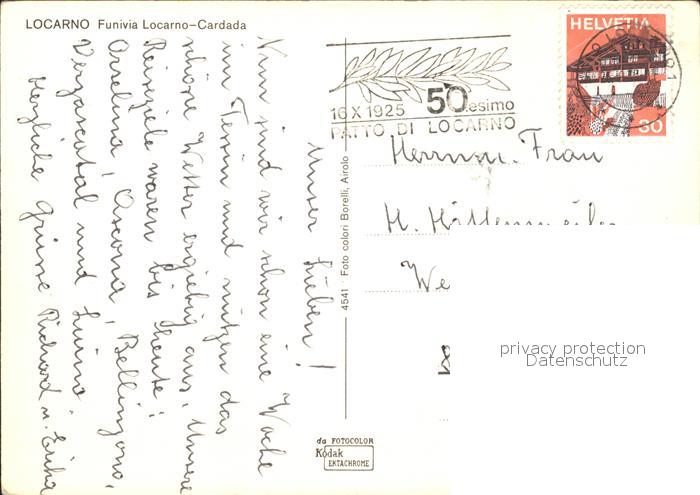 LOCARNO Funivia Locarno-Cardada
Unser Lieben!
Nun sind wir schon eine Woche
im Tessin und nützen das
schöne Wetter ergiebig aus. Unsere
Reiseziele waren bis heute:
Orselina, Ascona, Bellinzona,
Verzascatal und Luino.
Herzliche Grüsse Richard u. Erika
4541 Foto colori Borelli, Airolo
da FOTOCOLOR
Kodak
EKTACHROME
16 X 1925 50.esimo
PATTO DI LOCARNO
HELVETIA
30
Herrn u. Frau
H.
We
privacy protection
Datenschutz